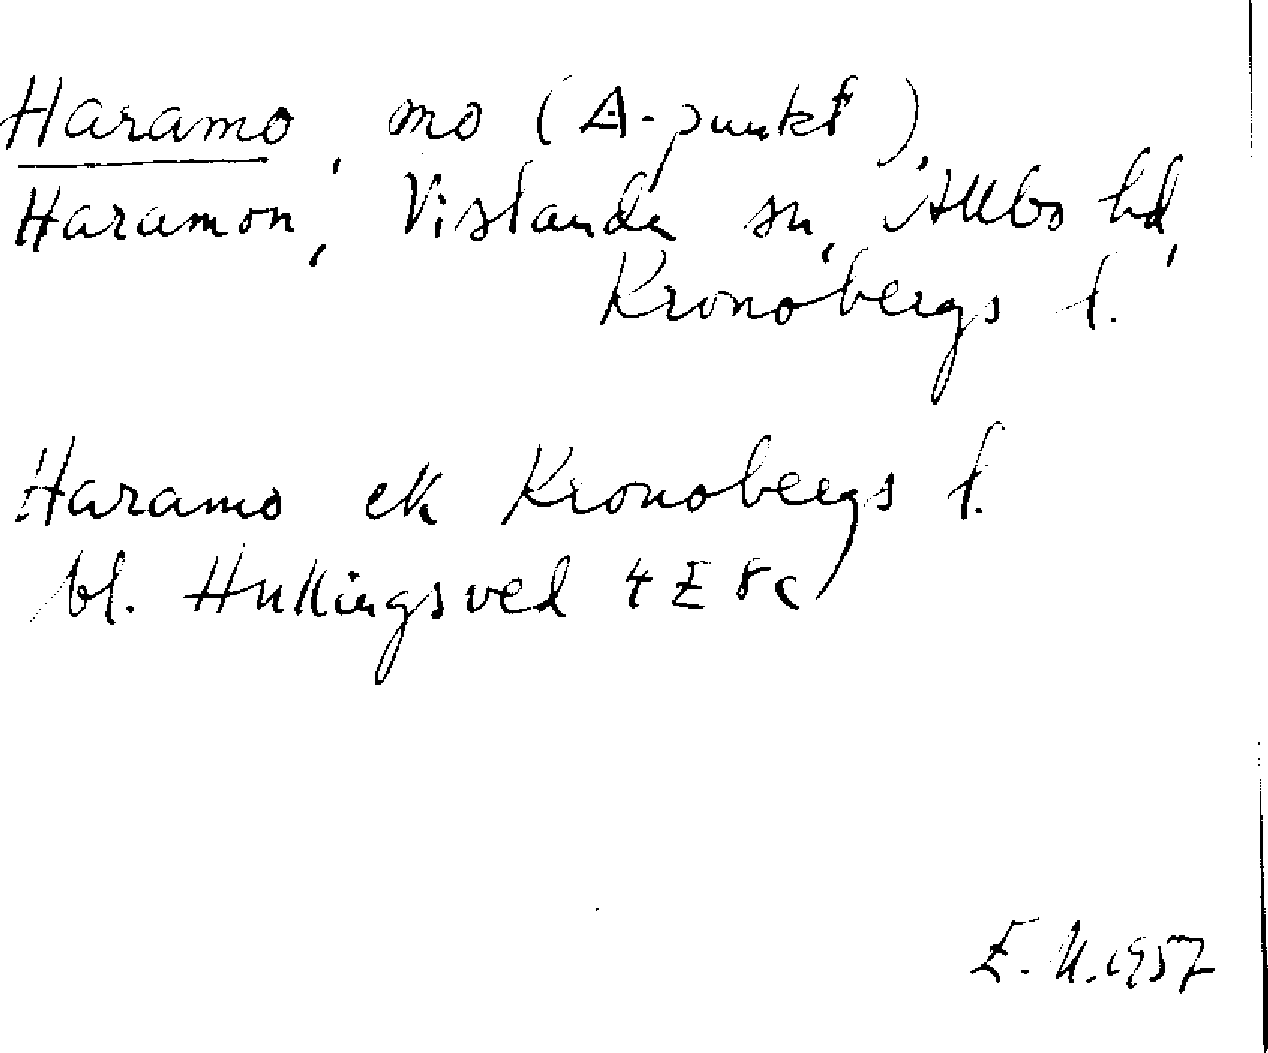 Haramo, mo (A-punkt),
Haramon, Vislanda sn, Allbo hd,
Kronobergs l.
Haramo ek Kronobergs l.
bl. Hullingsved 4 E 8 c
E. U. 1957